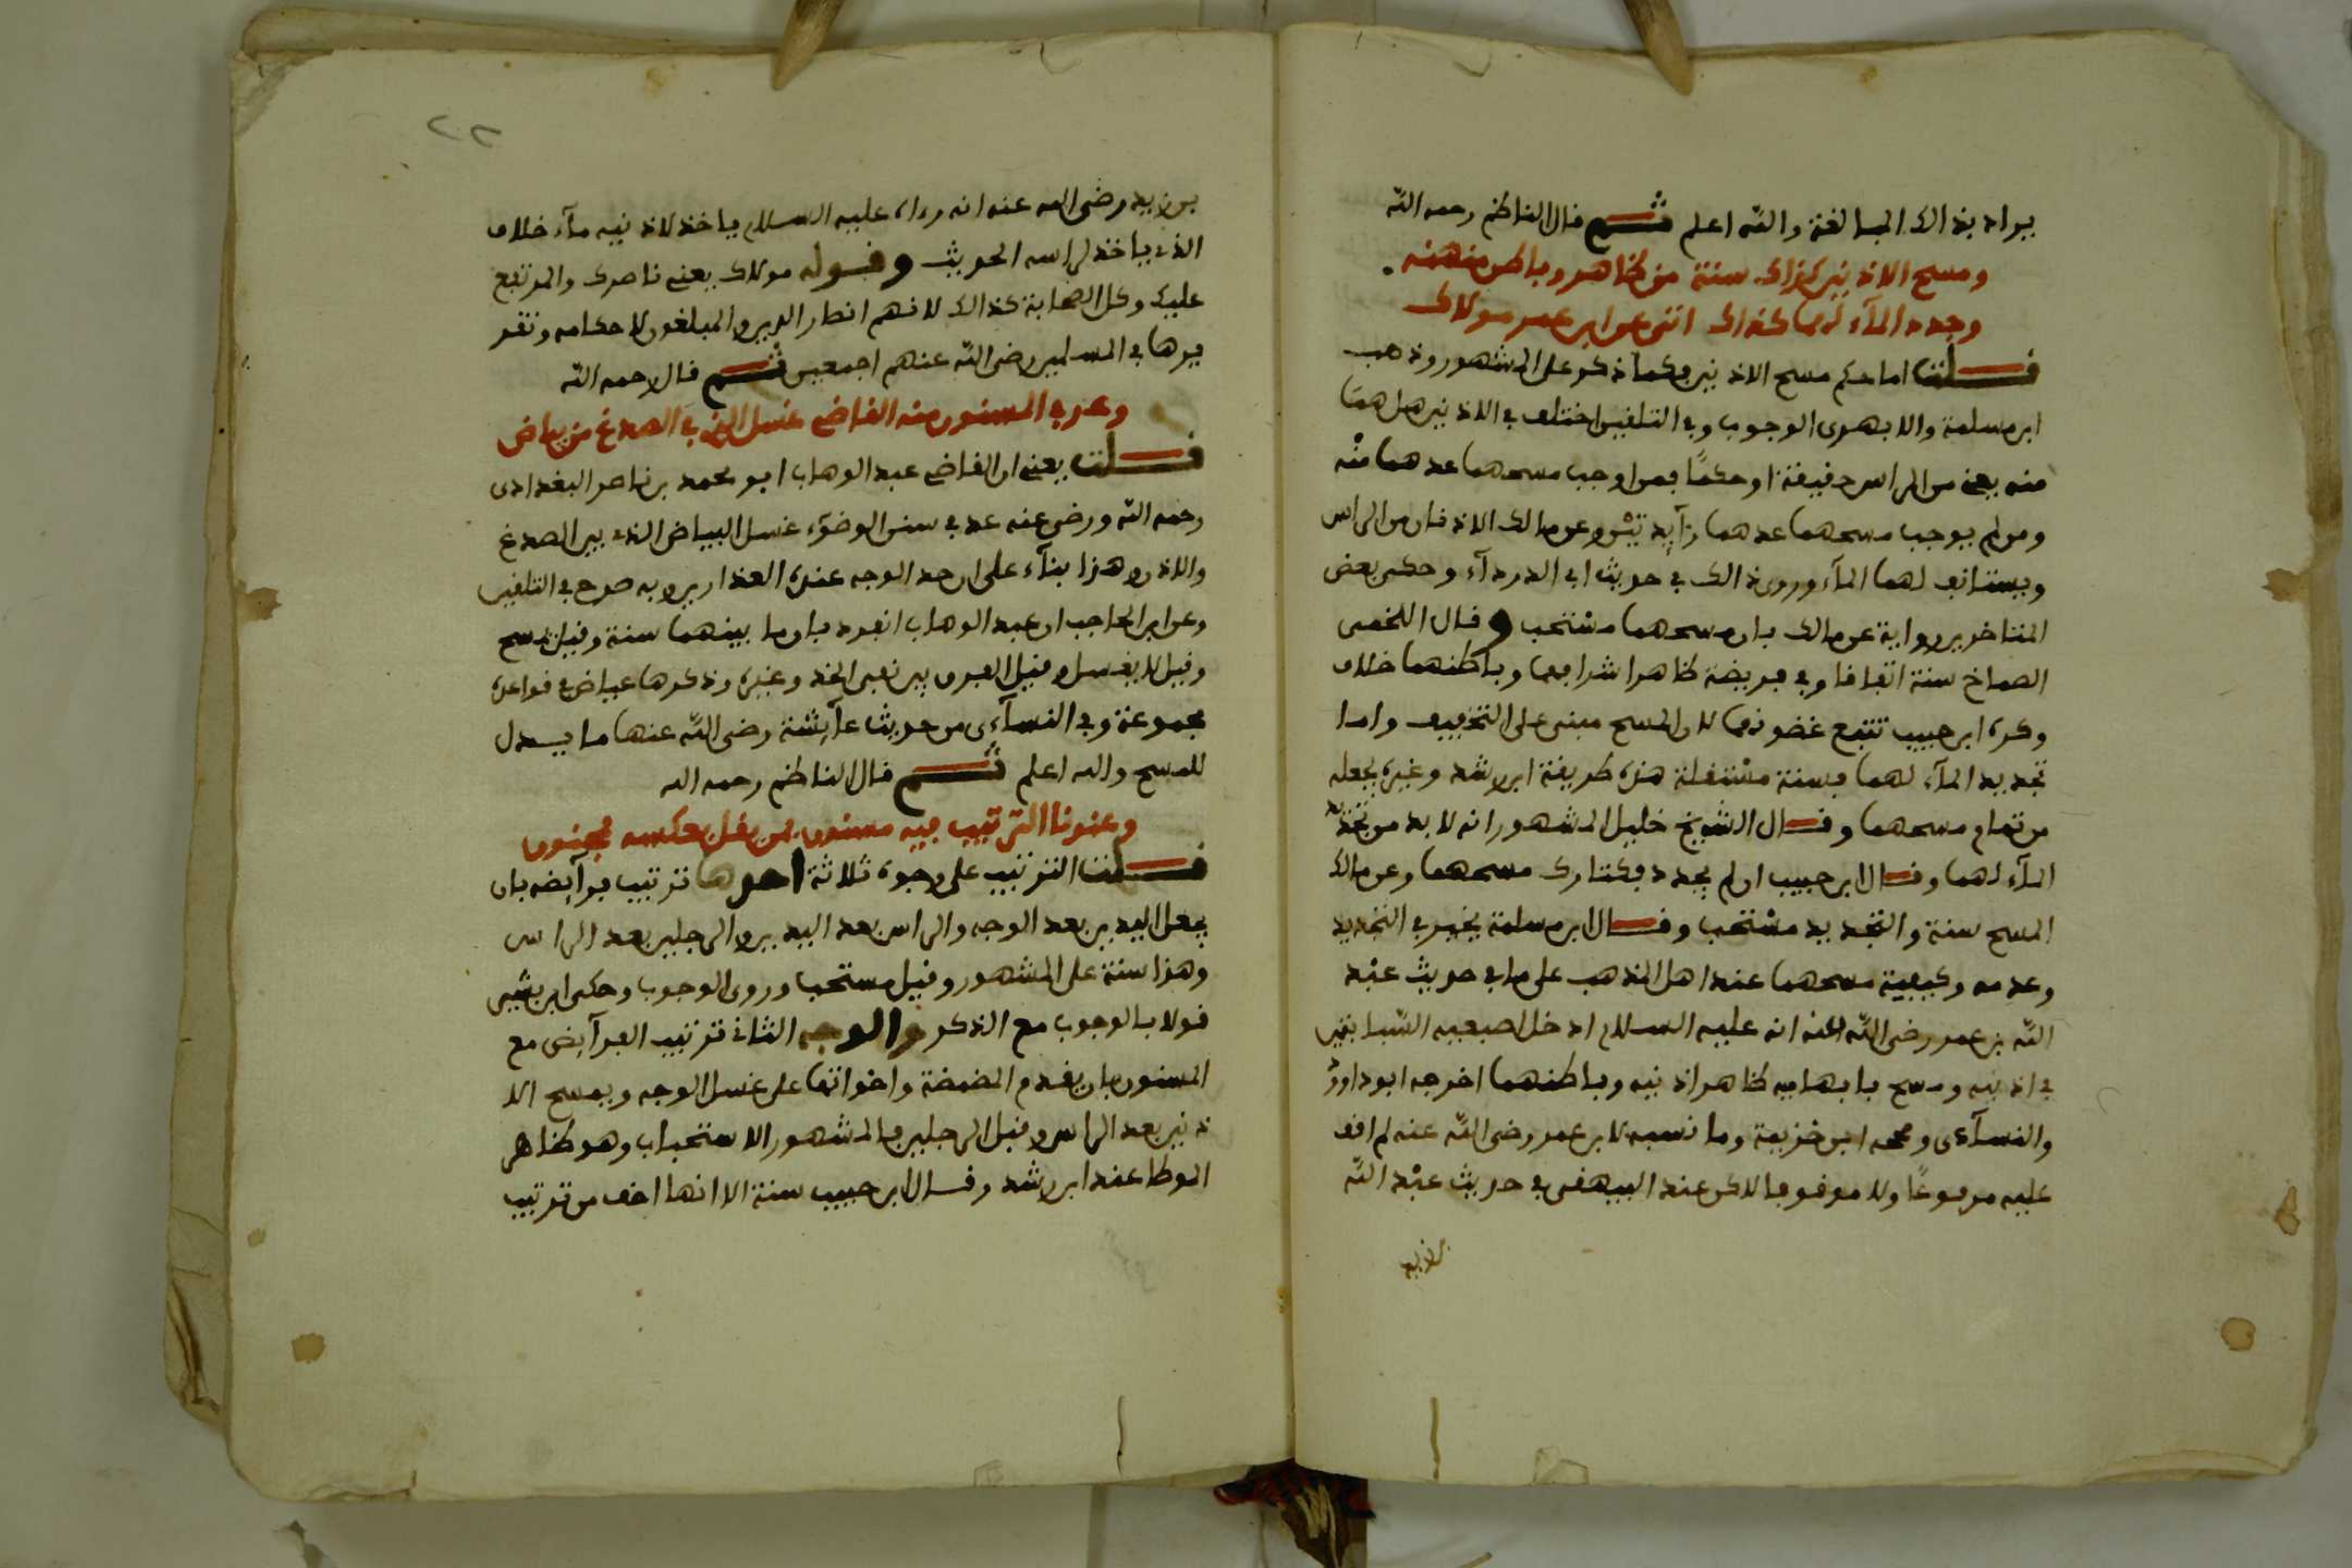 يراد بذالك المبالغة والله اعلم ثم قال الناظم رحمه الله
ومسح الاذنين كذاك سنة من ظاهر وباطن منهنه
وجدد المآء لها كذاك اتى عن ابن عمر مولاك
قلت اما حكم مسح الاذنين فكما ذكر على المشهور وذهب
ابن مسلمة والابهرى الوجوب وفي التلقين اختلف في الاذنين هل هما
منه يعني من الراس حقيقة او حكمًا فمن اوجب مسحهما عدهما منه
ومن لم يوجب مسحهما عدهما زآيدتين وعن مالك الاذنان من الراس
ويستانف لهما المآء وروى ذالك في حديث ابي الدردآء وحكى بعض
المتاخرين رواية عن مالك بان مسحهما مستحب وقال اللخمى
الصماخ سنة اتفاقا وفي فريضة ظاهر اشرافهما وباطنهما خلاف
وكره ابن حبيب تتبع غضونهما لان المسح مبنى على التخفيف واما
تجديد المآء لهما فسنة مستقلة هذه طريقة ابن رشد وغيره يجعله
من تمام مسحهما وقال الشيخ خليل المشهور انه لا بد من تجديد
المآء لهما وقال ابن حبيب ان لم يجدد فكتارك مسحهما وعن مالك
المسح سنة والتجديد مستحب وقال ابن مسلمة يخير في التجديد
وعدمه وكيفية مسحهما عند اهل المذهب على ما في حديث عبد
الله بن عمر رضى الله عنه انه عليه السلام ادخل اصبعيه السبابتين
في اذنيه ومسح بابهاميه ظاهر اذنيه وباطنهما اخرجه ابو داوود
والنسآءى وصححه ابن خزيمة وما نسبه لابن عمر رضى الله عنه لم اقف
عليه مرفوعًا ولا موقوفا لاكن عند البيهقى في حديث عبد الله
بن زيد
٢٢
بن زيد رضى الله عنه انه رءاه عليه السلام ياخذ لاذنيه مآء خلاف
الذى ياخذ لراسه الحديث وقوله مولاك يعنى ناصرك والمرتفع
عليك وكل الصحابة كذالك لانهم انصار الدين والمبلغون لاحكامه وتقر
يرها في المسلمين رضى الله عنهم اجمعين ثم قال رحمه الله
وعد في المسنون منه القاضى غسل الذى في الصدغ من بياض
قلت يعنى ان القاضى عبد الوهاب ابو محمد بن ناصر البغدادى
رحمه الله ورضى عنه عد في سنن الوضوء غسل البياض الذى بين الصدغ
والاذن وهذا بنآء على ان حد الوجه عنده العذارين وبه صرح في التلقين
وعن ابن الحاجب ان عبد الوهاب انفرد بان ما بينهما سنة وقيل يمسح
وقيل لا يغسل وقيل الفرق بين نقى الخد وغيره وذكرها عياض في قواعده
مجموعة وفي النسآءى من حديث عآيشة رضى الله عنها ما يدل
للمسح والله اعلم ثم قال الناظم رحمه الله
وعندنا الترتيب فيه مسنون من يقل بعكسه مجنون
قلت الترتيب على وجوه ثلاثة احدها ترتيب فرآيضه بان
يجعل اليدين بعد الوجه والراس بعد اليدين والرجلين بعد الراس
وهذا سنة على المشهور وقيل مستحب وروى الوجوب وحكى ابن بشير
قولا بالوجوب مع الذكر والوجه الثانى ترتيب الفرآيض مع
المسنون بان يقدم المضمضة واخواتها على غسل الوجه ويمسح الا
ذنين بعد الراس وقبل الرجلين والمشهور الاستحباب وهو ظاهر
الموطا عند ابن رشد وقال ابن حبيب سنة الا انها اخف من ترتيب